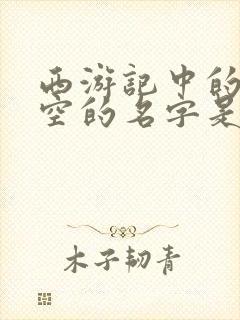 西游记中的
空的名字是
木子韧青